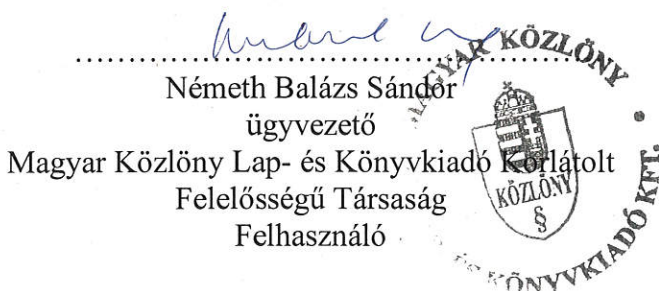 Németh Balázs Sándor
ügyvezető
Magyar Közlöny Lap- és Könyvkiadó Korlátolt
Felelősségű Társaság
Felhasználó
MAGYAR KÖZLÖNY
ÉS KÖNYVKIADÓ KFT.
KÖZLÖNY
§